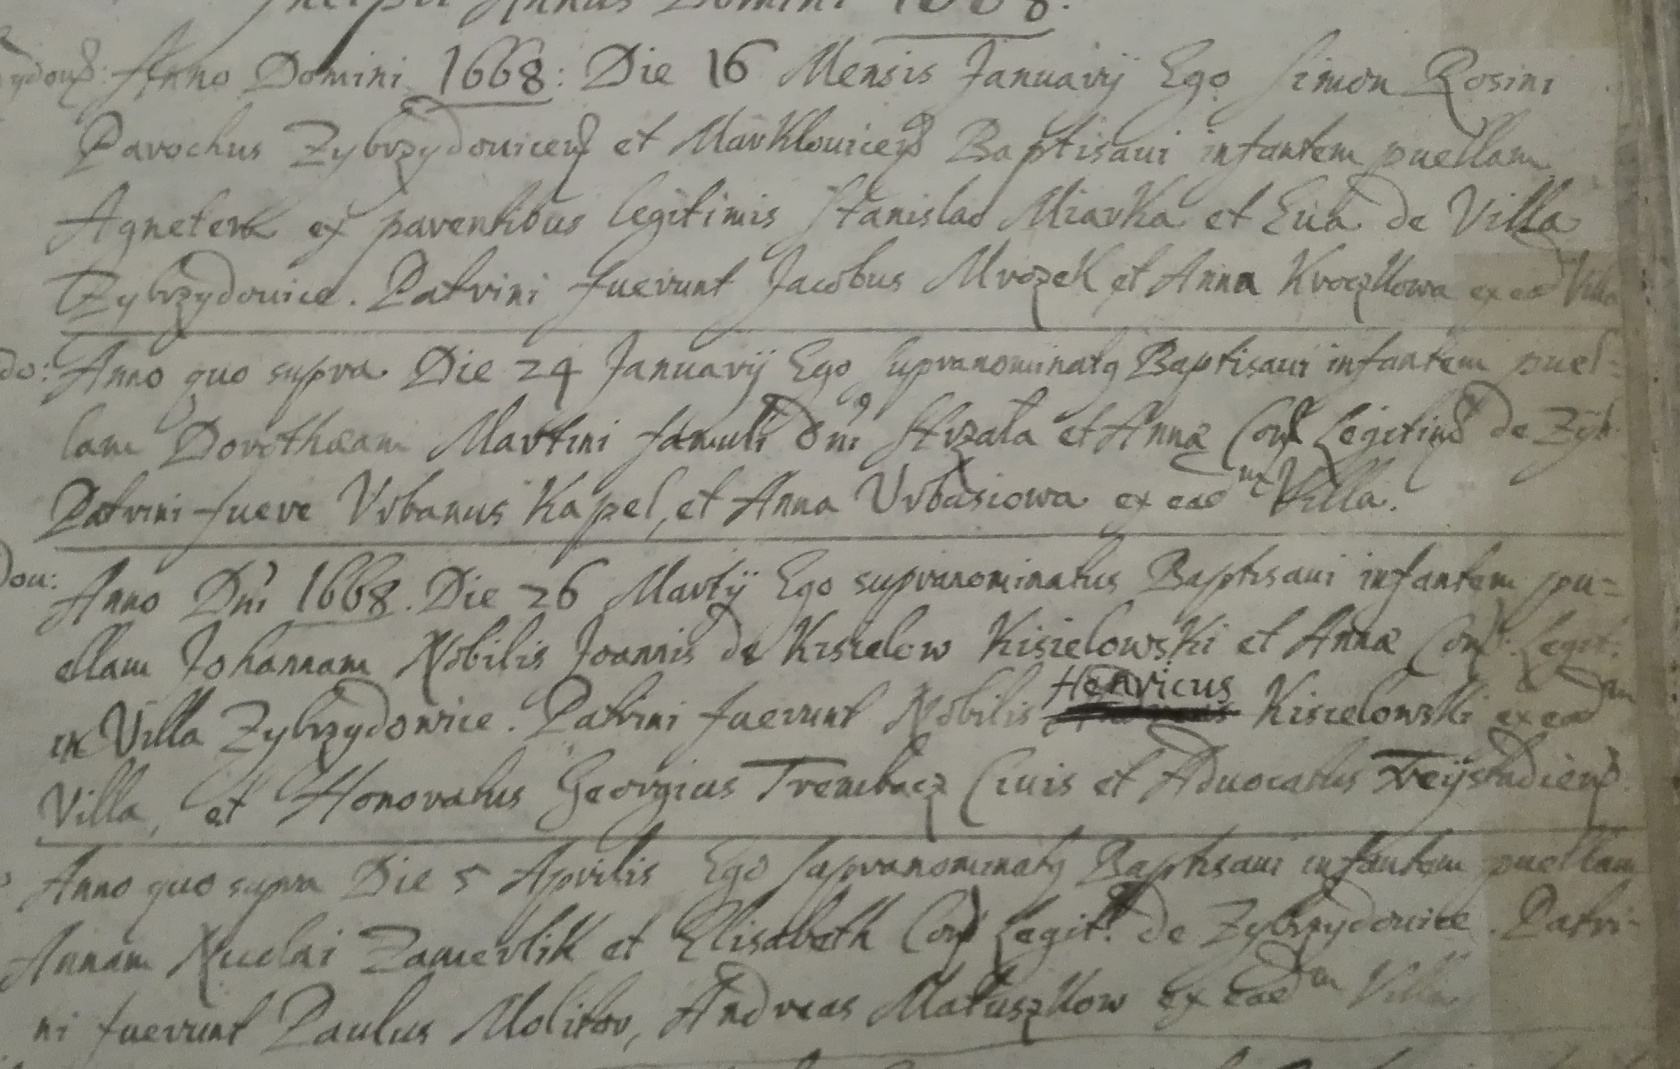 Annus Domini 1668.
Anno Domini 1668: Die 16 Mensis Januarij Ego Simon Rosini
Parochus Zybrzydouicens et Marklouicens Baptisaui infantem puellam
Agnetem ex parentibus legitimis Stanislao Miarka et Eua de Villa
Zybrzydouice. Patrini fuerunt Jacobus Mrozek et Anna Kroczkowa ex ead Villa
do: Anno quo supra Die 24 Januarij Ego supranominatq Baptisaui infantem puel=
lam Dorothæam Martini famuli Dni Strzala et Annæ Conj Legitim de Zyb
Patrini fuere Vrbanus Kapel, et Anna Vrbasiowa ex eadem Villa.
dou: Anno Dni 1668. Die 26 Martij Ego supranominatus Baptisaui infantem pu=
ellam Johannam Nobilis Joannis de Kisielow Kisielowski et Annæ Conj: Legit:
in Villa Zybrzydowice. Patrini fuerunt Nobilis Henricus Kisielowski ex eadem
Villa, et Honoratus Georgius Trembacz Ciuis et Aduocatus Freijstadiens
Anno quo supra Die 5 Aprilis Ego supranominatq Baptisaui infantem puellam
Annam Nicolai Zamerlik et Elisabeth Conj Legit: de Zybrzydouice. Patri-
ni fuerunt Paulus Molitor, Andreas Matuszkow ex eadem Villa